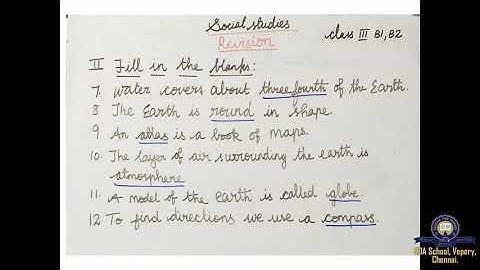 Social studies
Revision
class III B1, B2
II Fill in the blanks:
7. Water covers about three fourth of the Earth.
8 The Earth is round in shape.
9 An atlas is a book of maps.
10. The layer of air surrounding the earth is
atmosphere
11. A model of the earth is called globe.
12 To find directions we use a compass.
School, Vepery,
Chennai.